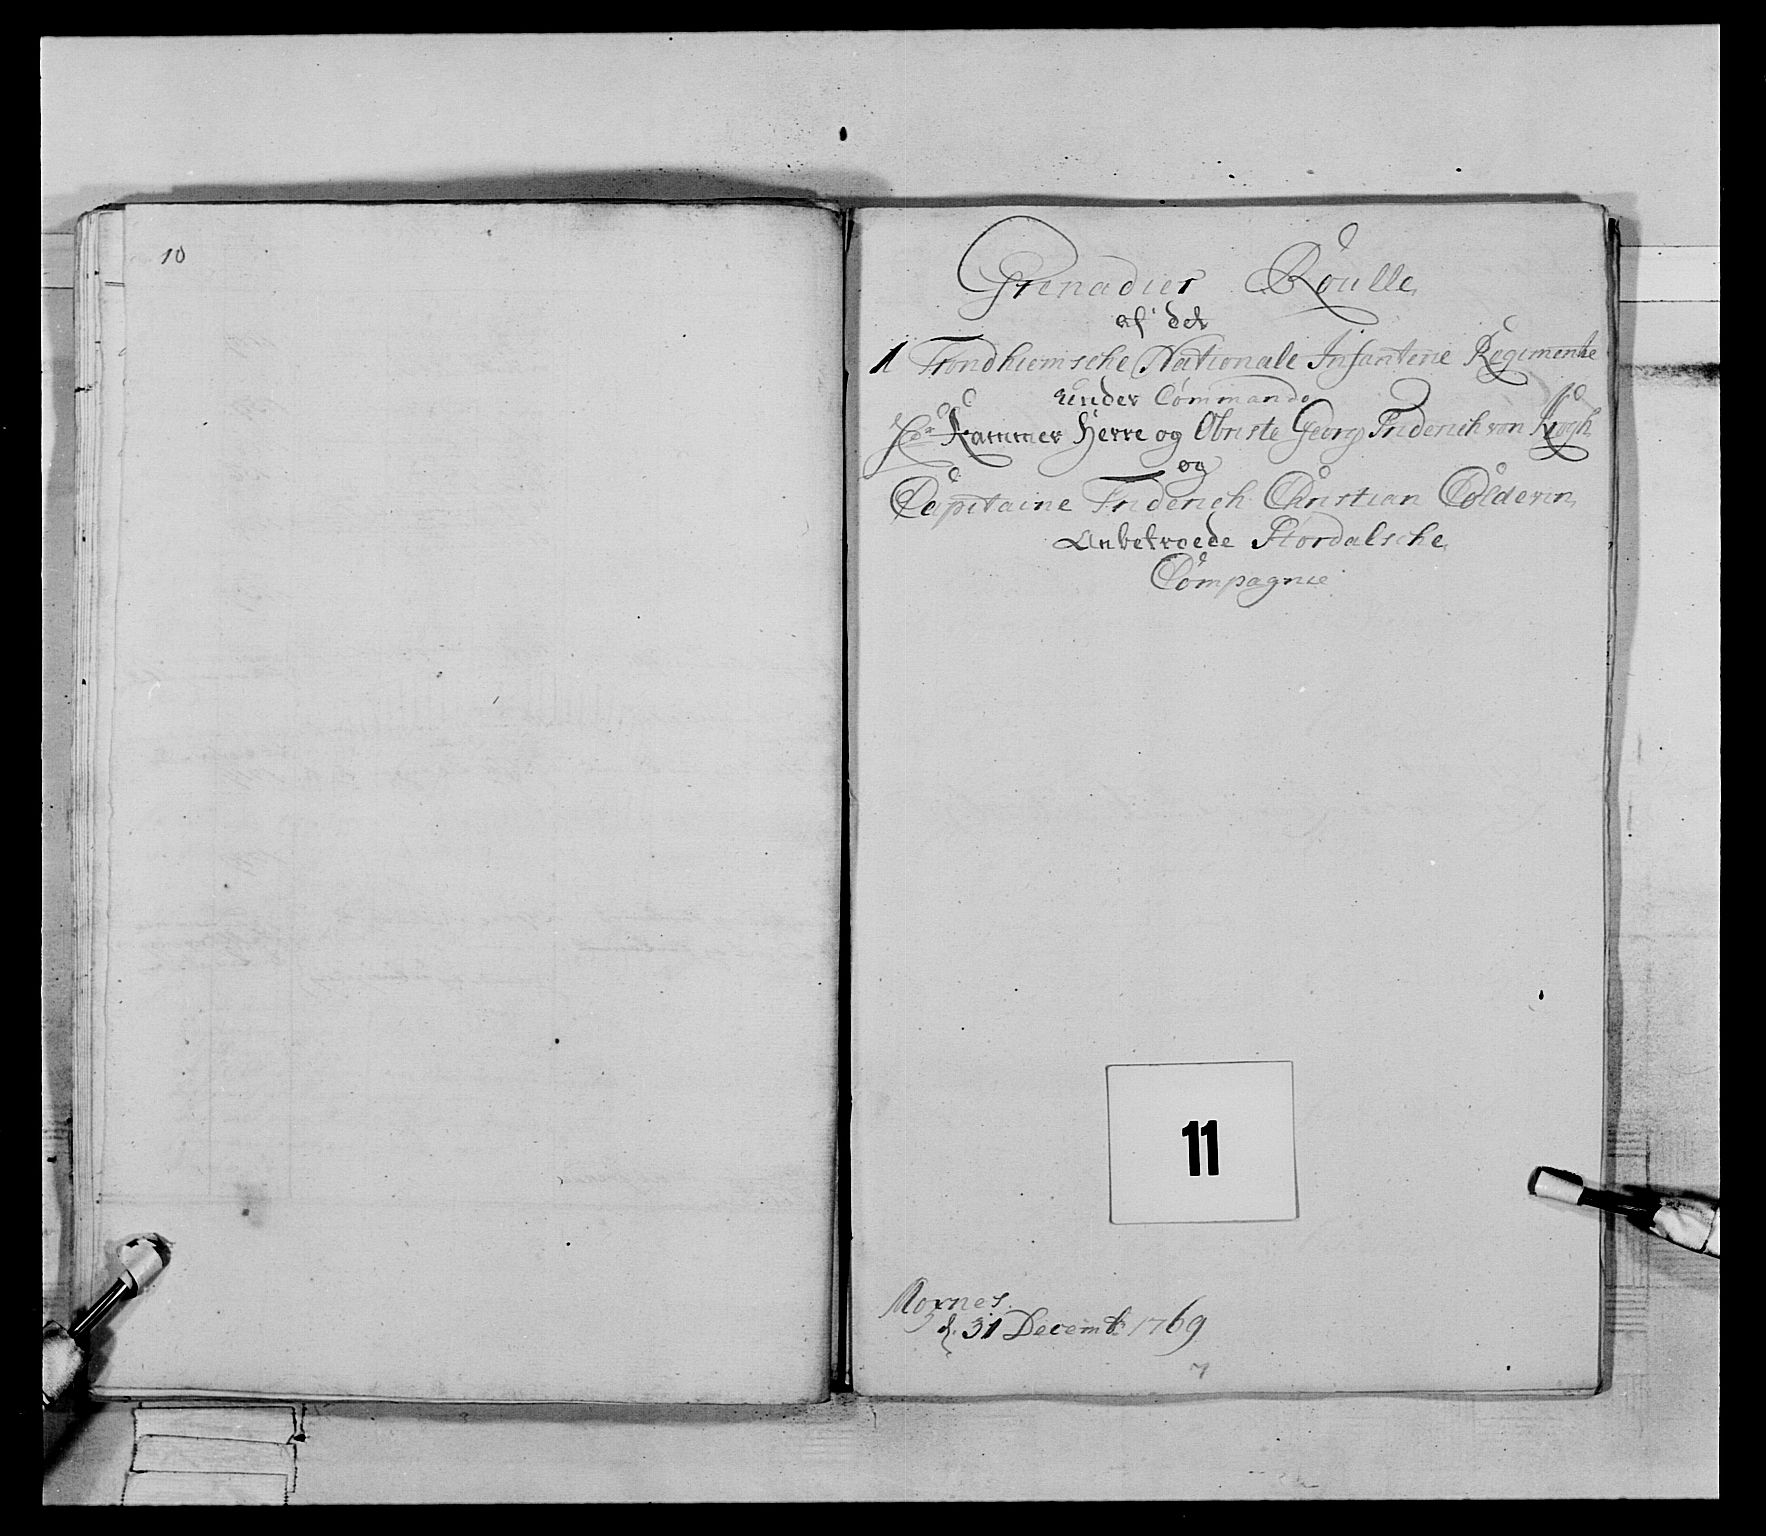 10
Grenadier Roulle
af det
1 Trondhiemsche Nationale Infanterie Regimente
under Commando
Hr Kammer Herre og Obriste Georg Friderich von Krogh
og
Capitaine Friderich Christian Colderin
Anbetroede Stordalsche
Compagnie
11
Mornes
d. 31 Decembr 1769